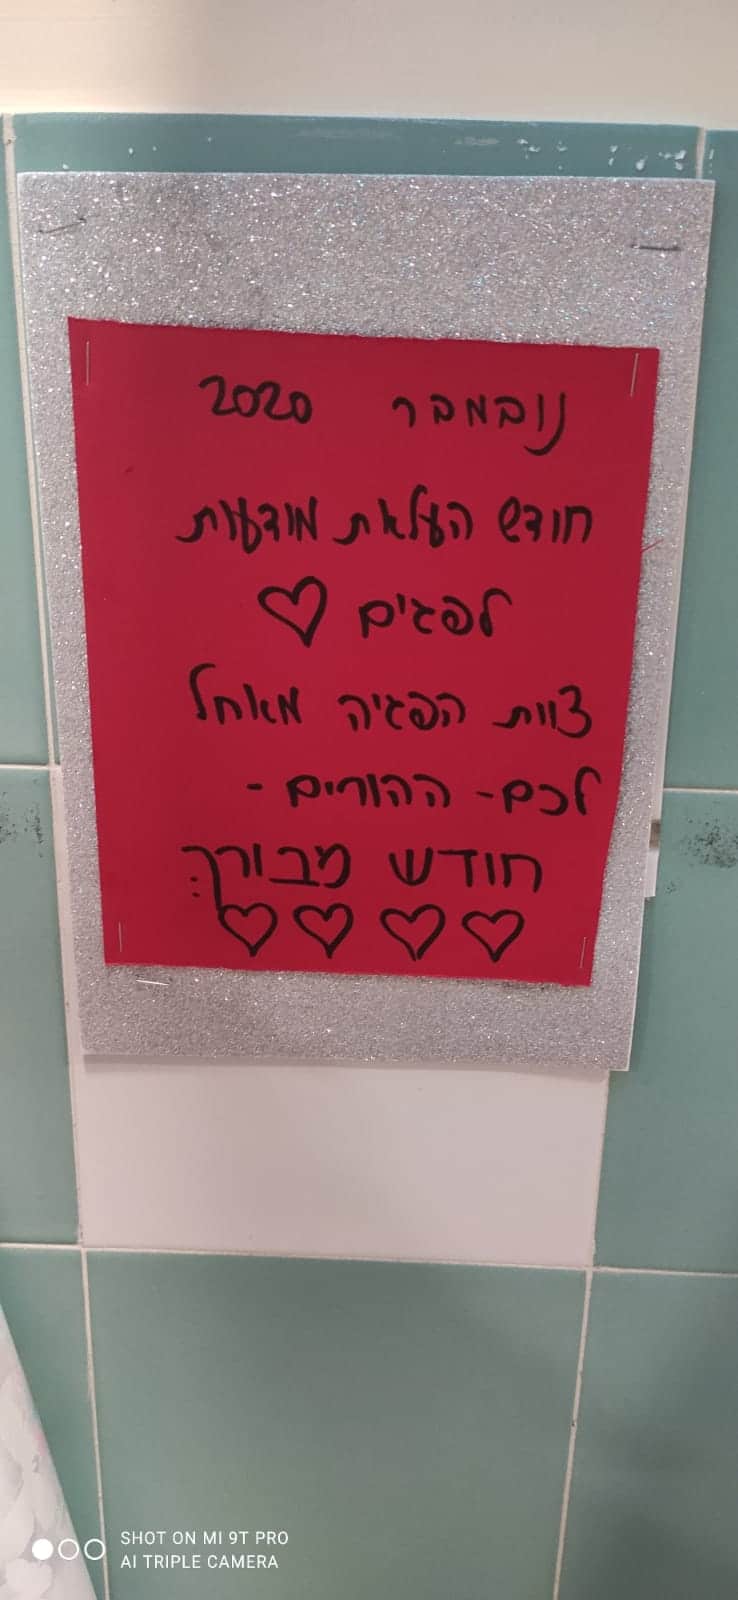 נובמבר 2020
חודש העלאת מודעות
לפגים ♡
צוות הפגיה מאחל
לכם- ההורים -
חודש מבורך:
♡ ♡ ♡ ♡
SHOT ON MI 9T PRO
AI TRIPLE CAMERA